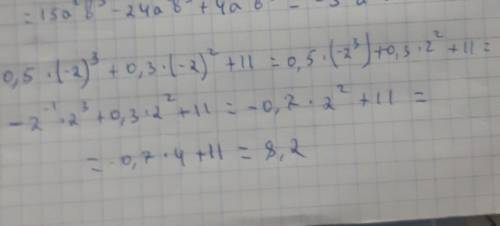 = 15a²b³ - 24ab + 4ab
0,5 · (-2)³ + 0,3 · (-2)² + 11 = 0,5 · (-2³) + 0,3 · 2² + 11 =
- 2⁻¹ · 2³ + 0,3 · 2² + 11 = - 0,7 · 2² + 11 =
= - 0,7 · 4 + 11 = 8,2